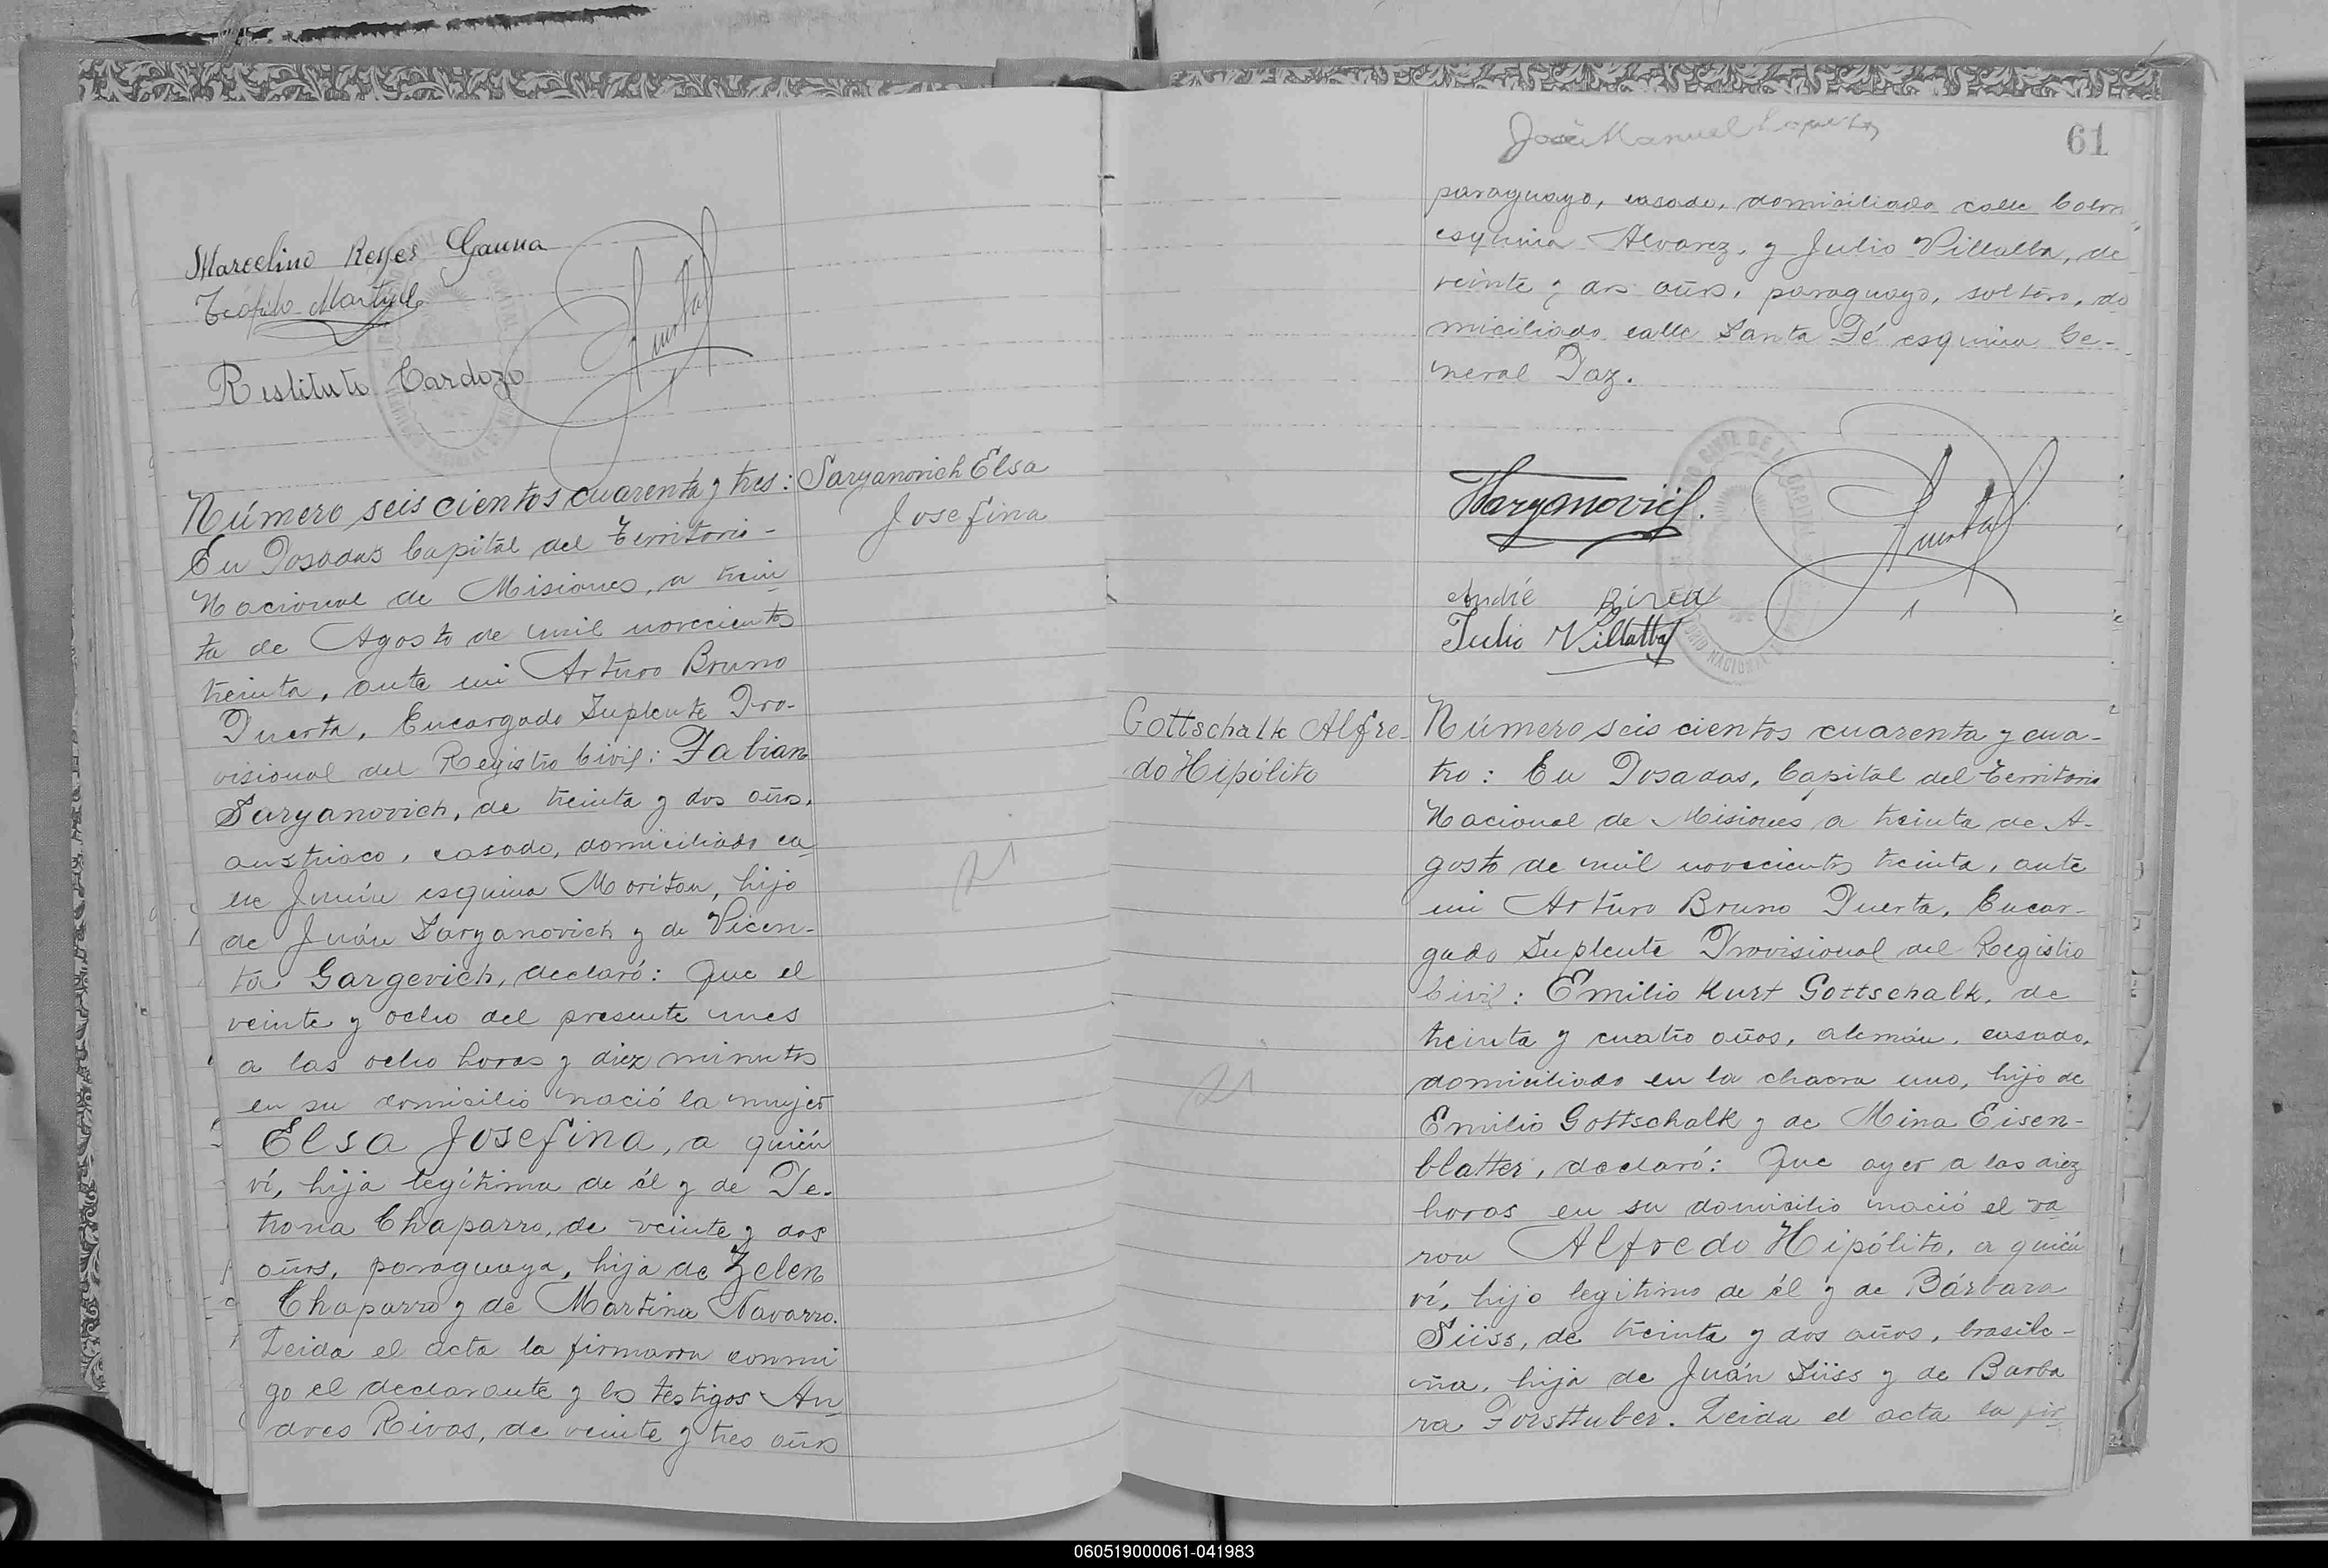 Marcelino Reyes Gauna
Teófilo
Restituto Cardozo
Número seiscientos cuarenta y tres:
Saryanovich Elsa
Josefina
En Posadas Capital del Territorio
Nacional de Misiones, a trein
ta de Agosto de mil novecientos
treinta, ante mi Arturo Bruno
Puerta, Encargado Suplente Pro-
visional del Registro Civil: Fabian
Saryanovich, de treinta y dos años,
austriaco, casado, domiciliado ca
lle Junín esquina Moritan, hijo
de Juán Saryanovich y de Vicen-
ta Gargevich, declaró: Que el
veinte y ocho del presente mes
a las ocho horas y diez minutos
en su domicilio nació la mujer
Elsa Josefina, a quién
ví, hija legítima de él y de Pe-
trona Chaparro, de veinte y dos
años, paraguaya, hija de Zelen
Chaparro y de Martina Navarro.
Leida el acta la firmaron conmi
go el declarante y los testigos An
dres Rivas, de veinte y tres años
21
José Manuel
61
paraguayo, casado, domiciliado calle Colon
esquina Alvarez, y Julio Villalba, de
veinte y dos años, paraguayo, soltero, do
miciliado calle Santa Fé esquina Ge-
neral Paz.
Julio Villalba
Gottschalk Alfre-
do Hipólito
Número seiscientos cuarenta y cua-
tro: En Posadas, Capital del Territorio
Nacional de Misiones a treinta de A-
gosto de mil novecientos treinta, ante
mi Arturo Bruno Puerta, Encar-
gado Suplente Provisional del Registro
Civil: Emilio Kurt Gottschalk, de
treinta y cuatro años, alemán, casado,
domiciliado en la chacra uno, hijo de
Emilio Gottschalk y de Mina Eisen-
blatter, declaró: Que ayer a las diez
horas en su domicilio nació el va
ron Alfredo Hipólito, a quién
ví, hijo legítimo de él y de Bárbara
Süss, de treinta y dos años, brasile-
ña, hija de Juán Süss y de Barba
ra Forsthuber. Leida el acta la fir
21
060519000061-041983